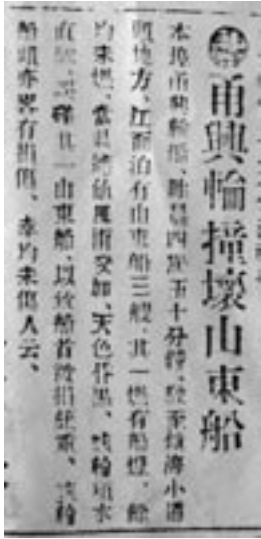 甬興輪撞壞山東船
本埠甬興輪船、昨晨四點五十分鐘、駛至鎮海小道
地方、江面泊有山東船三艘、其一燃有船燈、餘
均未燃、當是時狂風雨交加、天色昏黑、該輪順水
直駛、誤碰其一山東船、以致船首被損甚重、該輪
船頭亦畧有損傷、幸均未傷人云、